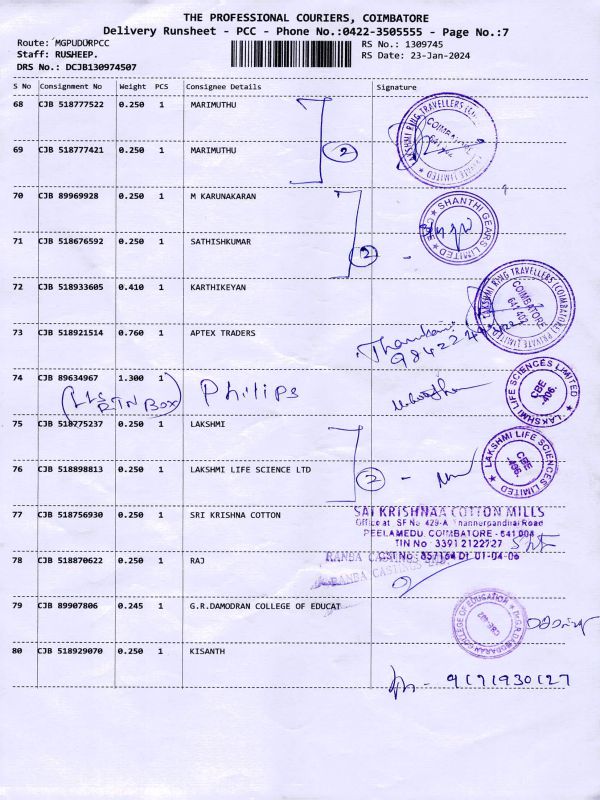 THE PROFESSIONAL COURIERS, COIMBATORE
Delivery Runsheet - PCC - Phone No.:0422-3505555 - Page No.:7
Route: MGPUDURPCC
RS No.: 1309745
Staff: RUSHEEP.
RS Date: 23-Jan-2024
DRS No.: DCJB130974507
S No Consignment No Weight PCS Consignee Details Signature
68 CJB 518777522 0.250 1 MARIMUTHU
LAKSHMI RING TRAVELLERS
COIMBATORE
2
69 CJB 518777421 0.250 1 MARIMUTHU
70 CJB 89969928 0.250 1 M KARUNAKARAN
SHANTHI GEARS LIMITED
71 CJB 518676592 0.250 1 SATHISHKUMAR
2 -
72 CJB 518933605 0.410 1 KARTHIKEYAN
LAKSHMI RING TRAVELLERS (COIMBATORE) PRIVATE LIMITED
COIMBATORE
641 402
73 CJB 518921514 0.760 1 APTEX TRADERS
74 CJB 89634967 1.300 1
RTN BOX
Philips
LAKSHMI LIFE SCIENCES LIMITED
CBE
-406.
75 CJB 518775237 0.250 1 LAKSHMI
LAKSHMI LIFE SCIENCES LIMITED
CBE
-406.
76 CJB 518898813 0.250 1 LAKSHMI LIFE SCIENCE LTD
2 -
77 CJB 518756930 0.250 1 SRI KRISHNA COTTON
SAI KRISHNAA COTTON MILLS
Office at SF No 429-A Thannerpandhal Road
PEELAMEDU, COIMBATORE - 641 004
TIN No 33912122727
CST No: 857164 Dt. 01-04-06
78 CJB 518870622 0.250 1 RAJ
RANBA CASTINGS
RANBA CASTINGS
79 CJB 89907806 0.245 1 G.R.DAMODRAN COLLEGE OF EDUCAT
COLLEGE OF EDUCATION
80 CJB 518929070 0.250 1 KISANTH
- 9171930127